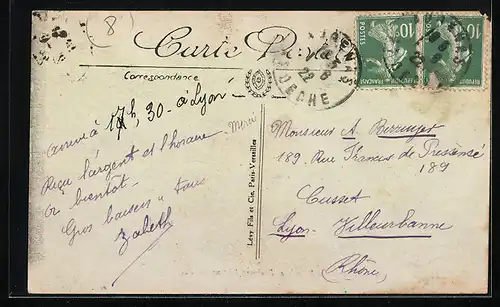 8
Carte Postale
Correspondance
arrivé à 17h,30 - à Lyon
Reçu l'argent et l'horaire Merci
à bientôt -
Gros baisers
POSTES
RÉPUBLIQUE FRANÇAISE
10c
10c
ARDÈCHE
22
Levy Fils et Cie, Paris-Versailles
Monsieur A. Beringer
189 Rue Francis de Pressensé
189
Cusset
Lyon - Villeurbanne
(Rhône)